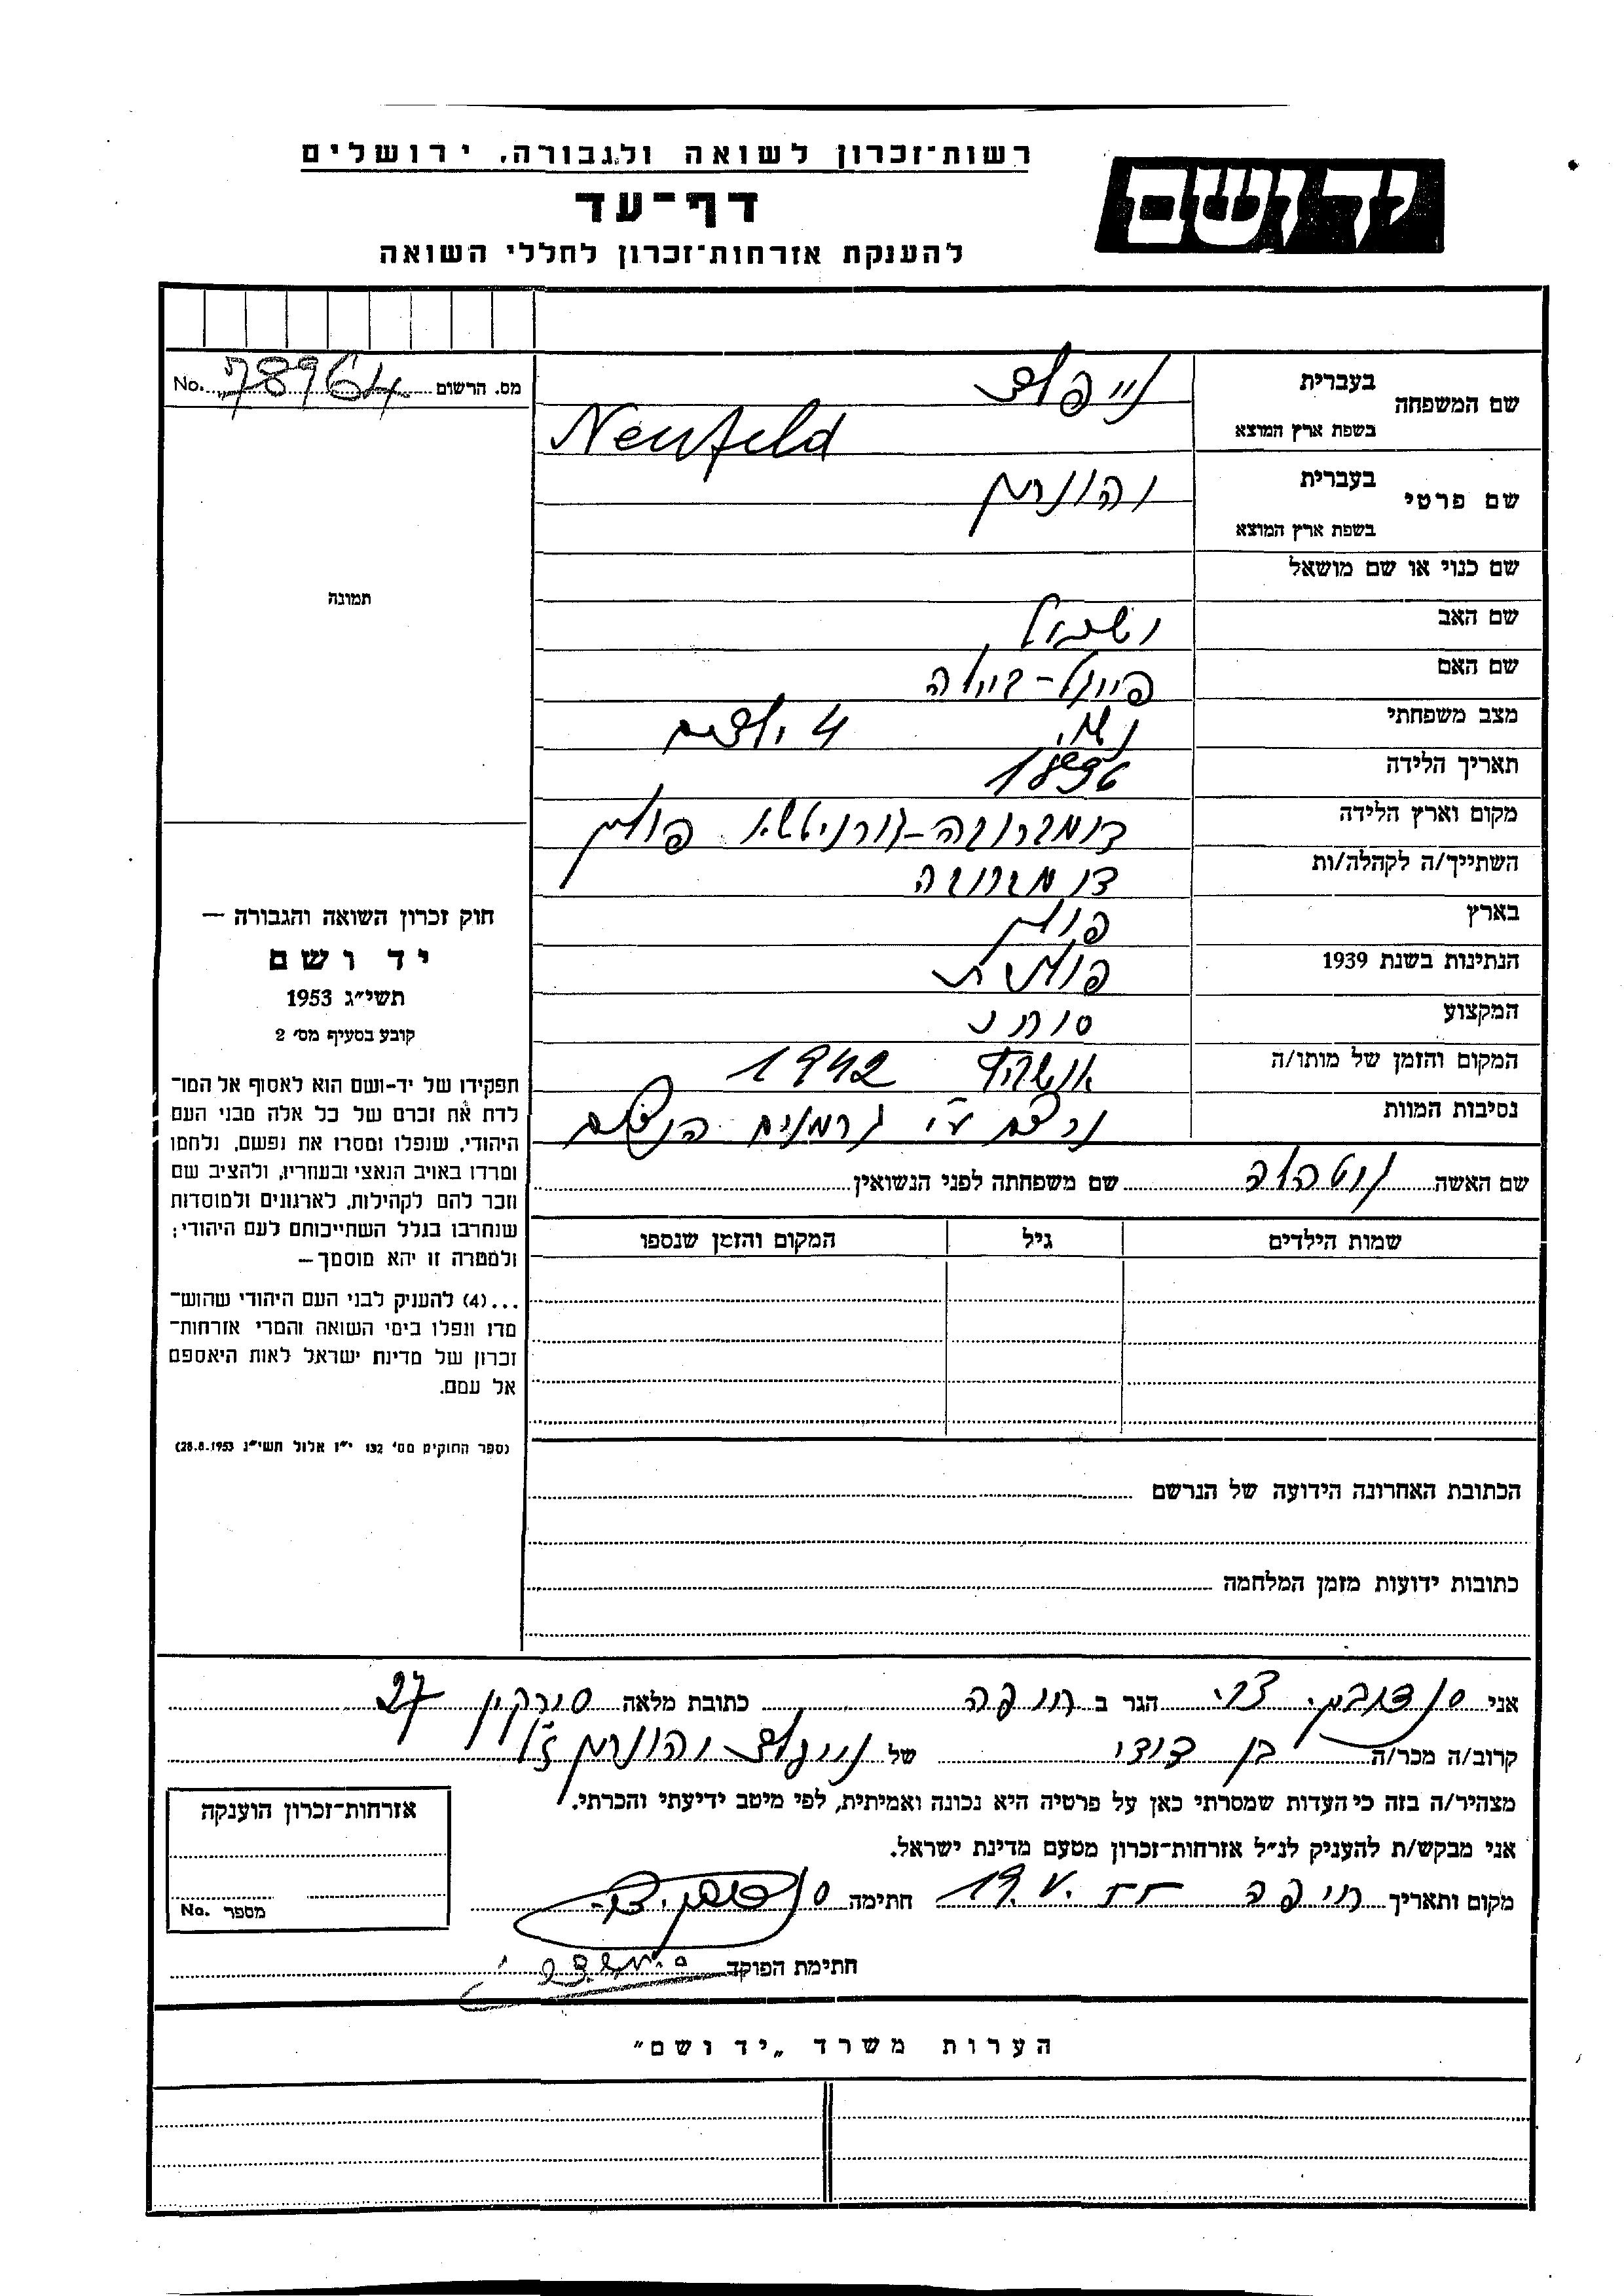 רשות־זכרון לשואה ולגבורה, ירושלים
יד ושם
דף־עד
להענקת אזרחות־זכרון לחללי השואה
מס. הרשום 78964 No.
שם המשפחה
בעברית נייפלד
בשפת ארץ המוצא Neufeld
שם פרטי
בעברית יהונתן
בשפת ארץ המוצא
שם כנוי או שם מושאל
שם האב ישראל
שם האם פייגל-ביילה
מצב משפחתי נשוי 4 ילדים
תאריך הלידה
מקום וארץ הלידה דומברובה-גורניטשא פולין
השתייך/ה לקהלה/ות דומברובה
בארץ פולין
הנתינות בשנת 1939 פולנית
המקצוע סוחר
המקום והזמן של מותו/ה אושויץ 1942
נסיבות המוות נרצח ע"י גרמנים הנאצים
שם האשה שם משפחתה לפני הנשואין
שמות הילדים גיל המקום והזמן שנספו
הכתובת האחרונה הידועה של הנרשם
כתובות ידועות מזמן המלחמה
תמונה
חוק זכרון השואה והגבורה —
יד ושם
תשי״ג 1953
קובע בסעיף מס׳ 2
תפקידו של יד-ושם הוא לאסוף אל המו־
לדת את זכרם של כל אלה מבני העם
היהודי, שנפלו ומסרו את נפשם, נלחמו
ומרדו באויב הנאצי ובעוזריו, ולהציב שם
וזכר להם לקהילות, לארגונים ולמוסדות
שנחרבו בגלל השתייכותם לעם היהודי;
ולמטרה זו יהא מוסמך—
...(4) להעניק לבני העם היהודי שהוש־
מדו ונפלו בימי השואה והמרי אזרחות־
זכרון של מדינת ישראל לאות היאספם
אל עמם.
(ספר החוקים מס׳ 132 י״ז אלול תשי״ג 28.8.1953)
אני צבי הגר ב חיפה כתובת מלאה סירקין 27
קרוב/ה מכר/ה בן דודי של נייפלד יהונתן ז"ל
מצהיר/ה בזה כי העדות שמסרתי כאן על פרטיה היא נכונה ואמיתית, לפי מיטב ידיעתי והכרתי.
אני מבקש/ת להעניק לנ״ל אזרחות־זכרון מטעם מדינת ישראל.
מקום ותאריך חיפה חתימה
חתימת הפוקד
אזרחות־זכרון הוענקה
מספר No.
הערות משרד „יד ושם״